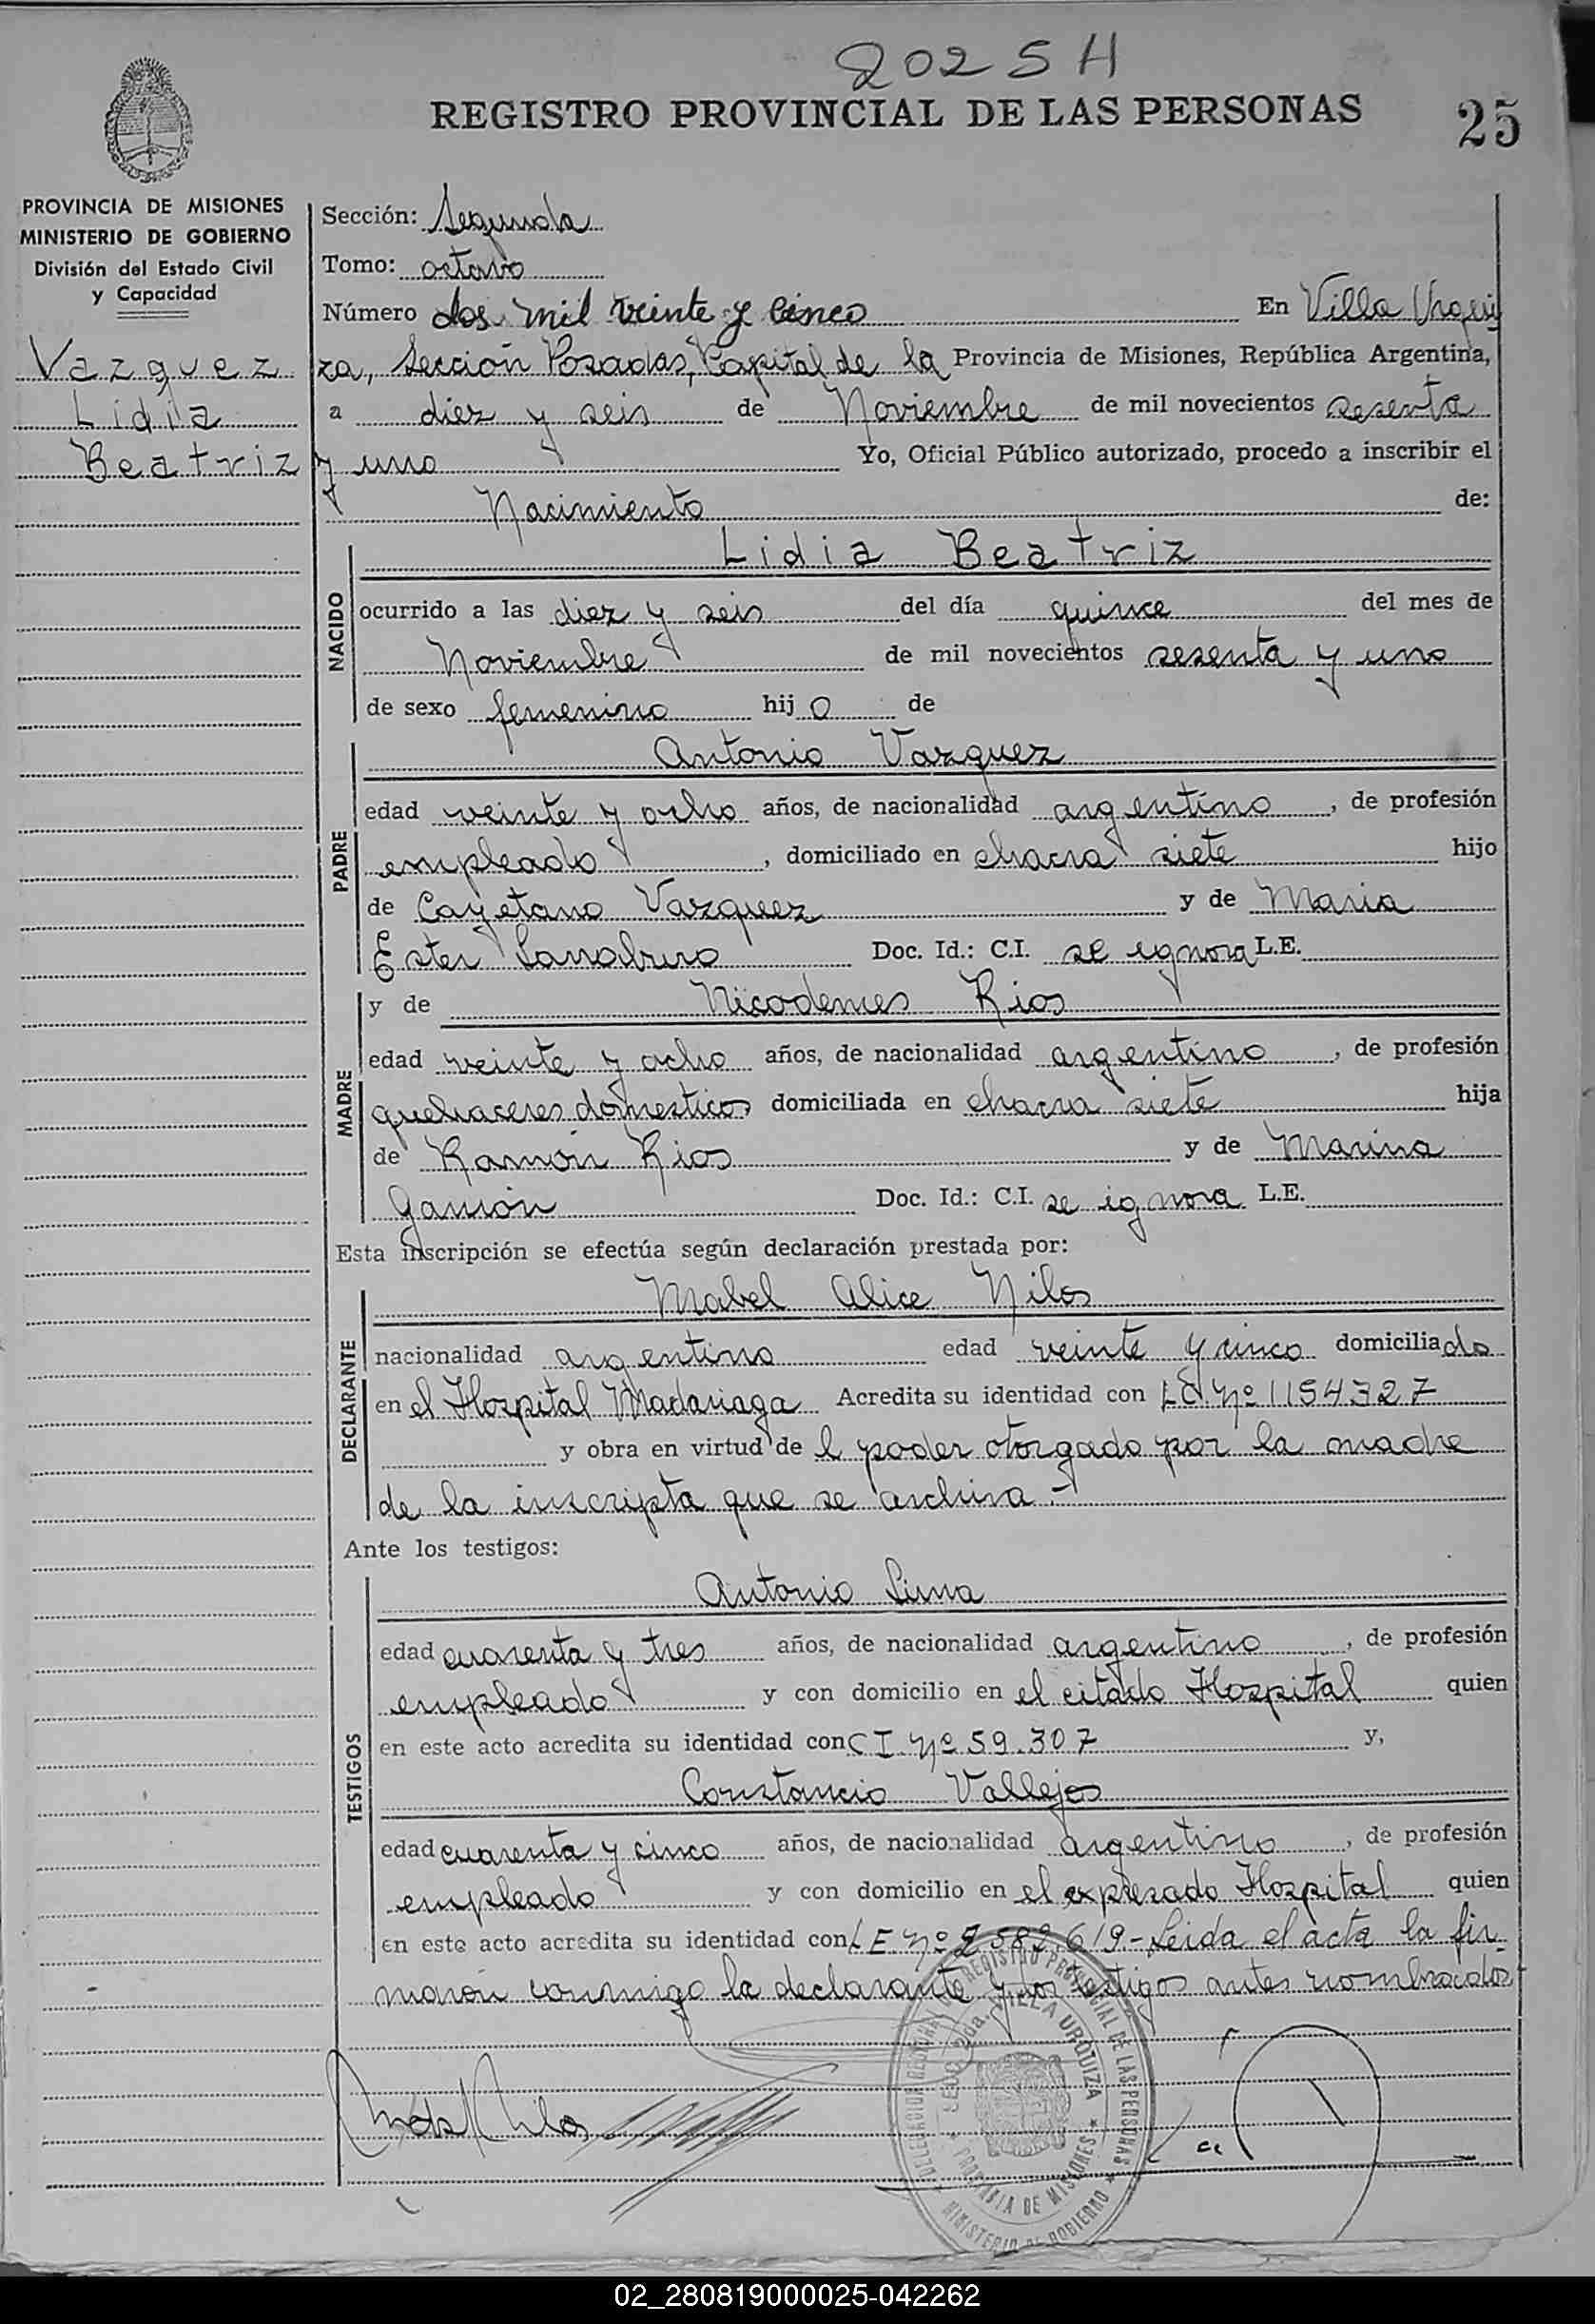 2025 H
REGISTRO PROVINCIAL DE LAS PERSONAS
25
PROVINCIA DE MISIONES
MINISTERIO DE GOBIERNO
División del Estado Civil
y Capacidad
Vazquez
Lidia
Beatriz
Sección: Segunda
Tomo: octavo
Número dos mil veinte y cinco En Villa Urqui
za, Sección Posadas, Capital de la Provincia de Misiones, República Argentina,
a diez y seis de Noviembre de mil novecientos sesenta
y uno Yo, Oficial Público autorizado, procedo a inscribir el
Nacimiento de:
Lidia Beatriz
NACIDO
ocurrido a las diez y seis del día quince del mes de
Noviembre de mil novecientos sesenta y uno
de sexo femenino hij o de
Antonio Vazquez
PADRE
edad veinte y ocho años, de nacionalidad argentino, de profesión
empleado, domiciliado en chacra siete hijo
de Cayetano Vazquez y de Maria
Ester Doc. Id.: C.I. se ignora L.E.
y de Nicodemes Rios
MADRE
edad veinte y ocho años, de nacionalidad argentino, de profesión
quehaceres domesticos domiciliada en chacra siete hija
de Ramón Rios y de Marina
Doc. Id.: C.I. se ignora L.E.
Esta inscripción se efectúa según declaración prestada por:
Mabel Alice Nilos
DECLARANTE
nacionalidad argentino edad veinte y cinco domiciliado
en el Hospital Madariaga Acredita su identidad con LC. Nº 1154327
y obra en virtud de l poder otorgado por la madre
de la inscripta que se archiva.-
Ante los testigos:
Antonio Lima
TESTIGOS
edad cuarenta y tres años, de nacionalidad argentino, de profesión
empleado y con domicilio en el citado Hospital quien
en este acto acredita su identidad con C I. Nº 59.307 y,
Constancio Vallejos
edad cuarenta y cinco años, de nacionalidad argentino, de profesión
empleado y con domicilio en el expresado Hospital quien
en este acto acredita su identidad con L E. Nº 2.582.619.- Leida el acta la fir-
maron conmigo la declarante y los testigos antes nombrados
DELEGACION REGIONAL DEL REGISTRO PROVINCIAL DE LAS PERSONAS
SECC. 2da. VILLA URQUIZA
PROVINCIA DE MISIONES
MINISTERIO DE GOBIERNO
02_280819000025-042262